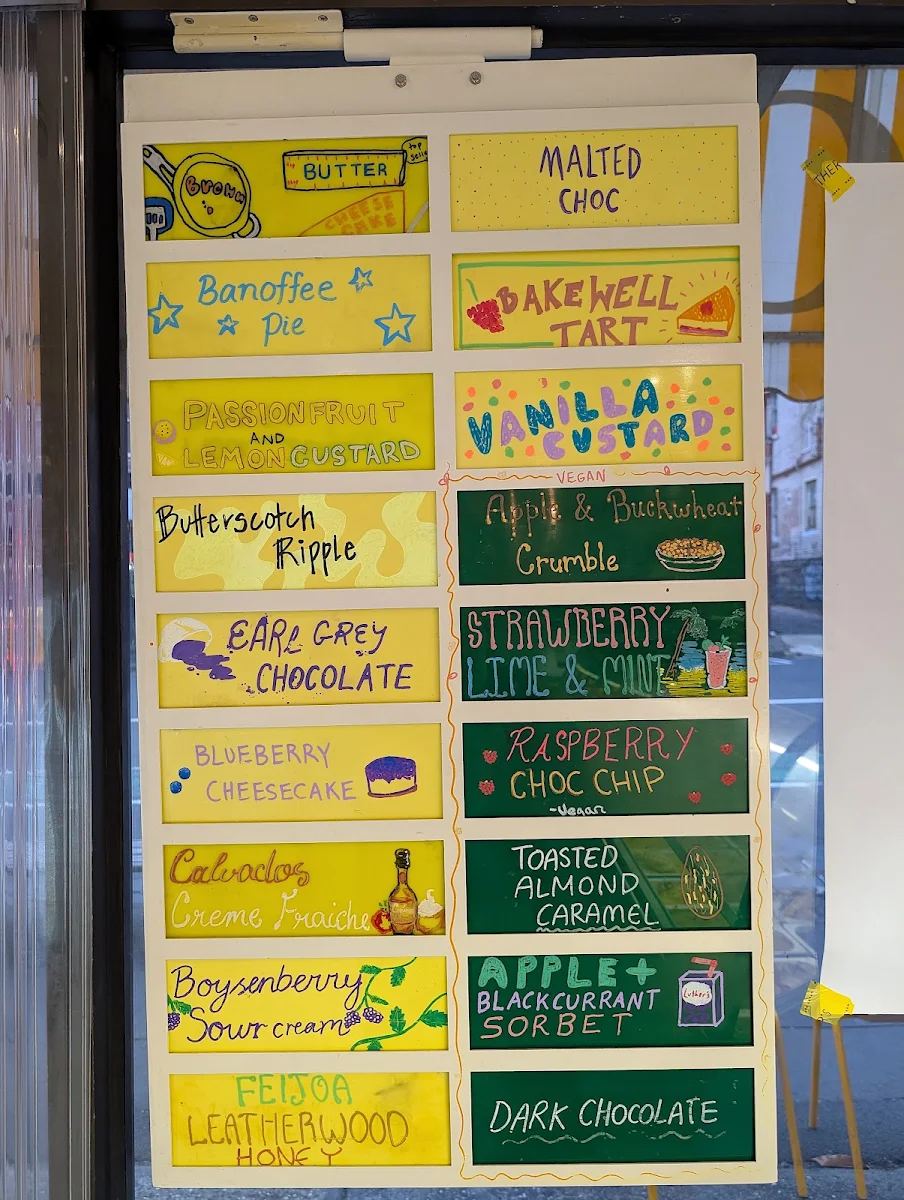 Brown
BUTTER
top
CHEESE
CAKE
Banoffee
Pie
PASSIONFRUIT
AND
LEMON CUSTARD
Butterscotch
Ripple
EARL GREY
CHOCOLATE
BLUEBERRY
CHEESECAKE
Calvados
Creme Fraiche
Boysenberry
Sour cream
FEIJOA
LEATHERWOOD
HONEY
MALTED
CHOC
BAKEWELL
TART
VANILLA
CUSTARD
VEGAN
Apple & Buckwheat
Crumble
STRAWBERRY
LIME & MINT
RASPBERRY
CHOC CHIP
-Vegan
TOASTED
ALMOND
CARAMEL
APPLE +
BLACKCURRANT
SORBET
Luther's
DARK CHOCOLATE